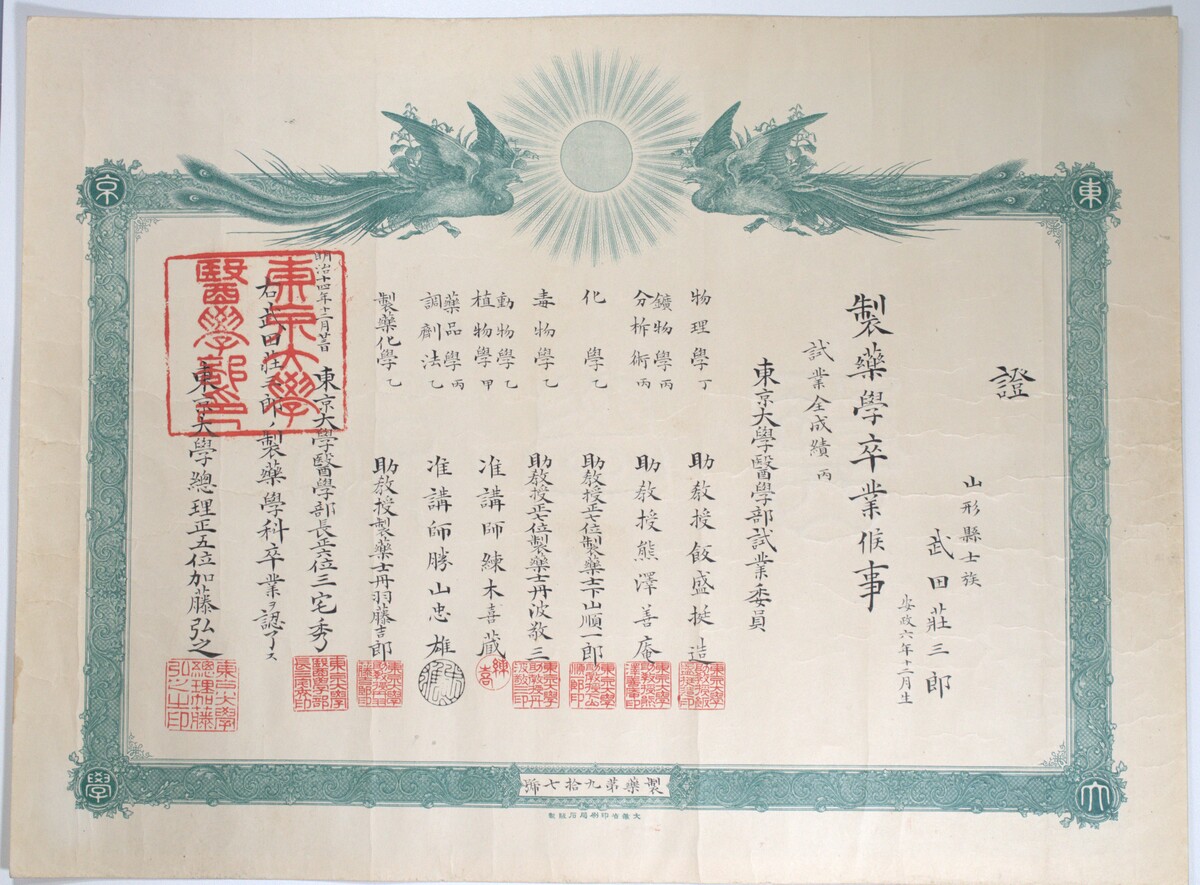 證
山形縣士族
武田莊三郎
安政六年十二月生
製藥學卒業候事
試業全成績 丙
東京大學醫學部試業委員
物理學 丁
助教授飯盛挺造
鑛物學 丙
分析術 丙
助教授熊澤善庵
化學 乙
助教授正七位製藥士下山順一郎
毒物學 乙
助教授正七位製藥士丹波敬三
動物學 乙
植物學 甲
准講師練木喜藏
藥品學 丙
調劑法 乙
准講師勝山忠雄
製藥化學 乙
助教授製藥士丹羽藤吉郎
明治十四年十二月
東京大學醫學部長正六位三宅秀
右武田莊三郎ノ製藥學科卒業ヲ認了ス
東京大學總理正五位加藤弘之
東京大學
醫學部印
東
京
大
學
製藥第九拾七號
大藏省印刷局石版製